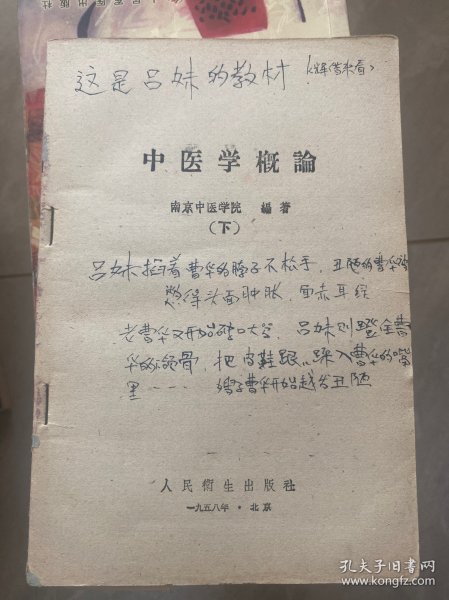 这是吕妹的教材
中医学概論
南京中医学院 編著
（下）
吕妹掐着曹华的脖子不松手，丑陋的曹华被
憋得头面肿胀，面赤耳红
老曹华又开始破口大骂，吕妹则蹬住曹
华的颌骨，把高鞋跟踩入曹华的嘴
里…… 曹华开始越发丑陋
人民衛生出版社
一九五八年·北京
孔夫子旧书网
book.kongfz.com